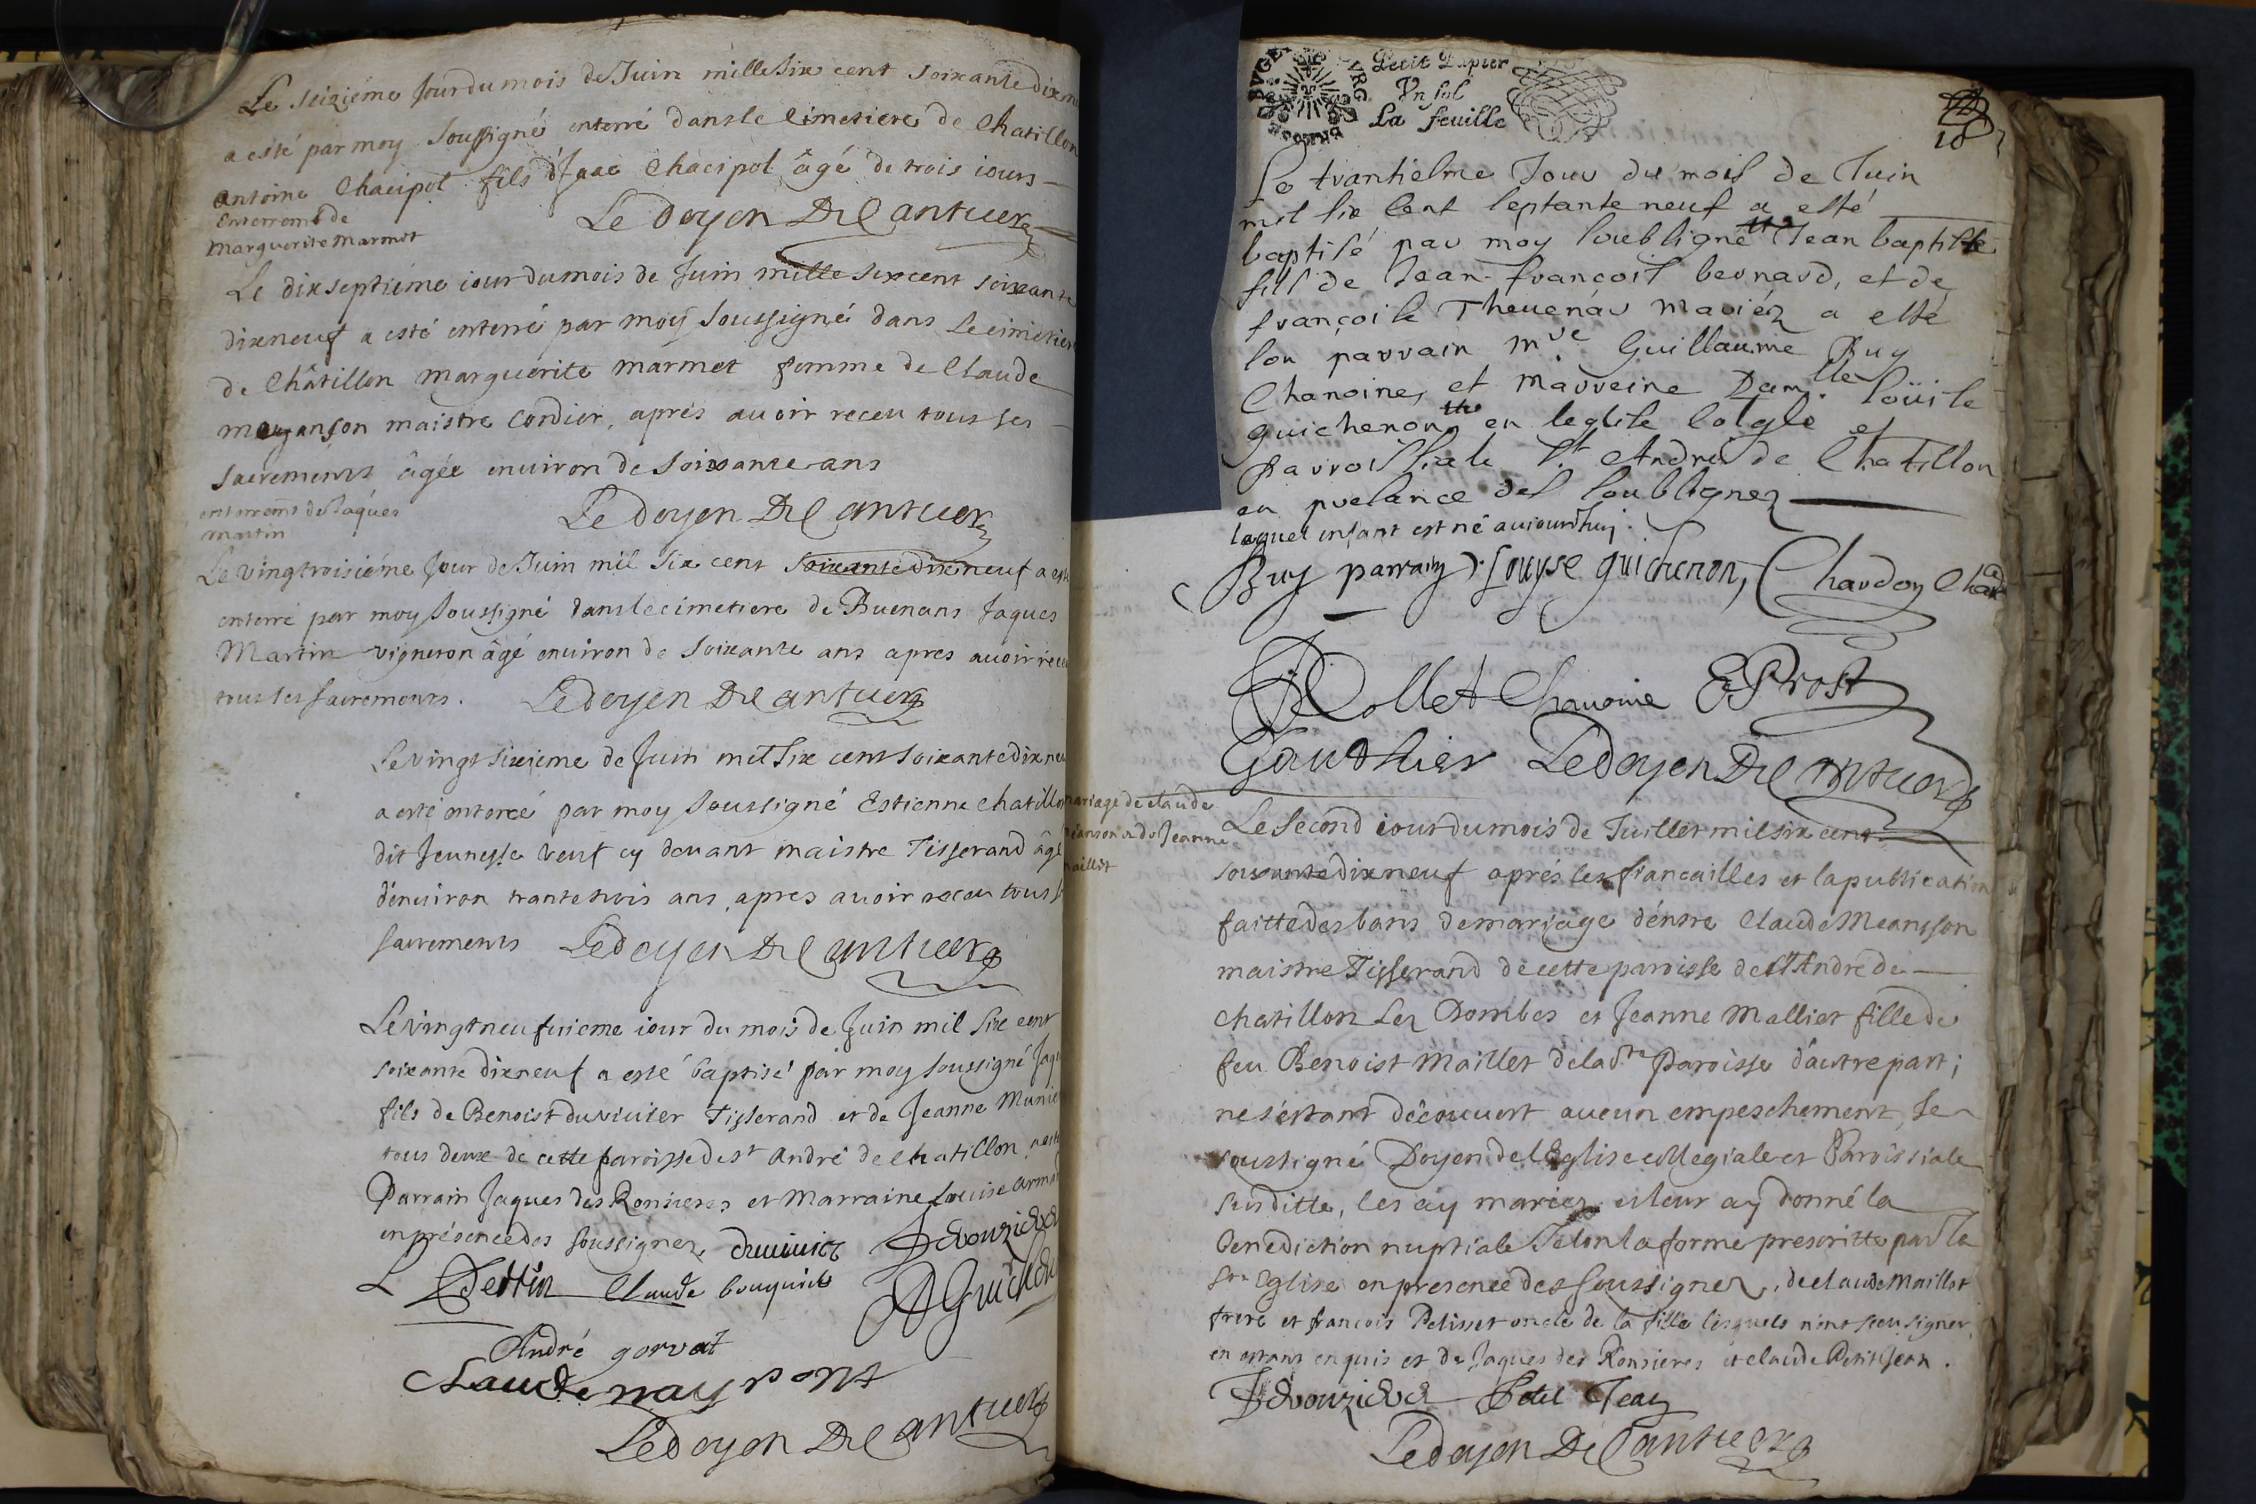 Le seizième Jour du mois de Juin mille six cent soixante dix
a esté par moy soussigné enterré dans le Cimetiere de Chatillon
Antoine Chacipol fils d'Isaac Chacipol âgé de trois iours
Le Doyen De
Enterremt de
Marguerite Marmet
Le dixseptiéme iour du mois de Juin mille six cent soixante
dixneuf a esté enterré par moy soussigné dans le cimetier
de Châtillon Marguerite Marmet femme de Claude
maistre Cordier, aprés auoir receu tous ses
sacrements âgée enuiron de soixante ans
enterremt de Jaques
Martin
Le Doyen De
Le vingtroisiéme Jour de Juin mil six cent soixante dixneuf a esté
enterré par moy soussigné dans le cimetiere de Buenans Jaques
Martin vigneron âgé enuiron de soixante ans apres auoir receu
tous les sacrements. Le doyen De
Le vingt sixieme de Juin mil six cent soixante dix neu
a esté enterré par moy soussigné Estienne Chatillon
dit Jeunesse veuf cy deuant maistre Tisserand âgé
d'enuiron trante trois ans, apres auoir receu tous s
sacrements Le doyen De
Le vingt neufuieme iour du mois de Juin mil six cent
soixante dixneuf a esté baptisé par moy soussigné Jaqu
fils de Benoist duviuier Tisserand et de Jeanne Munie
tous deux de cette paroisse de st André de Chatillon,
Parrain Jaques des Ronsieres et Marraine Louise
en présence des soussignez, duuiuier
Claude bouquin
André gorvat
Claude
Le doyen De
Petit Papier
Vn sol
La feuille
18
Le trantiesme Jour du mois de Juin
mil six cent septante neuf a esté
baptisé par moy soubsigné Jean baptiste
fils de Jean françois bernard, et de
françoise Theuenar mariéz a esté
son parrain mre Guillaume Buy
Chanoine, et marreine Damlle Loüise
guichenon en leglise colgle et
parroissiale St André de Chatillon
en presance des soubsignez
lequel enfant est né auiourdhuj.
Buy parrain Louyse guichenon, Chardon
Collet Chanoine Prost
Gauthier Le doyen De
mariage de Claude
et de Jeanne
maillet
Le second iour du mois de Juillet mil six cent
soixante dixneuf aprés les fiancailles et la publication
faitte des bans de mariage d'entre Claude Meansson
maistre Tisserand de cette paroisse de st André de
Chatillon Les Dombes et Jeanne Mallier fille de
feu Benoist Maillet de la dte Paroisse d'autre part;
ne s'estant découvert aucun empeschement, Je
soussigné Doyen de l'Eglise collegiale et Paroissiale
susditte, les ay mariez et leur ay donné la
Benediction nuptiale selon la forme prescritte par la
ste Eglise en presence des soussignez, de claude Maillet
frere et françois Pelisset oncle de la fille lesquels n'ont sceu signer
en estans enquis et de Jaques des Ronsieres et claude Petit Jean.
Petit Jean
Le doyen De